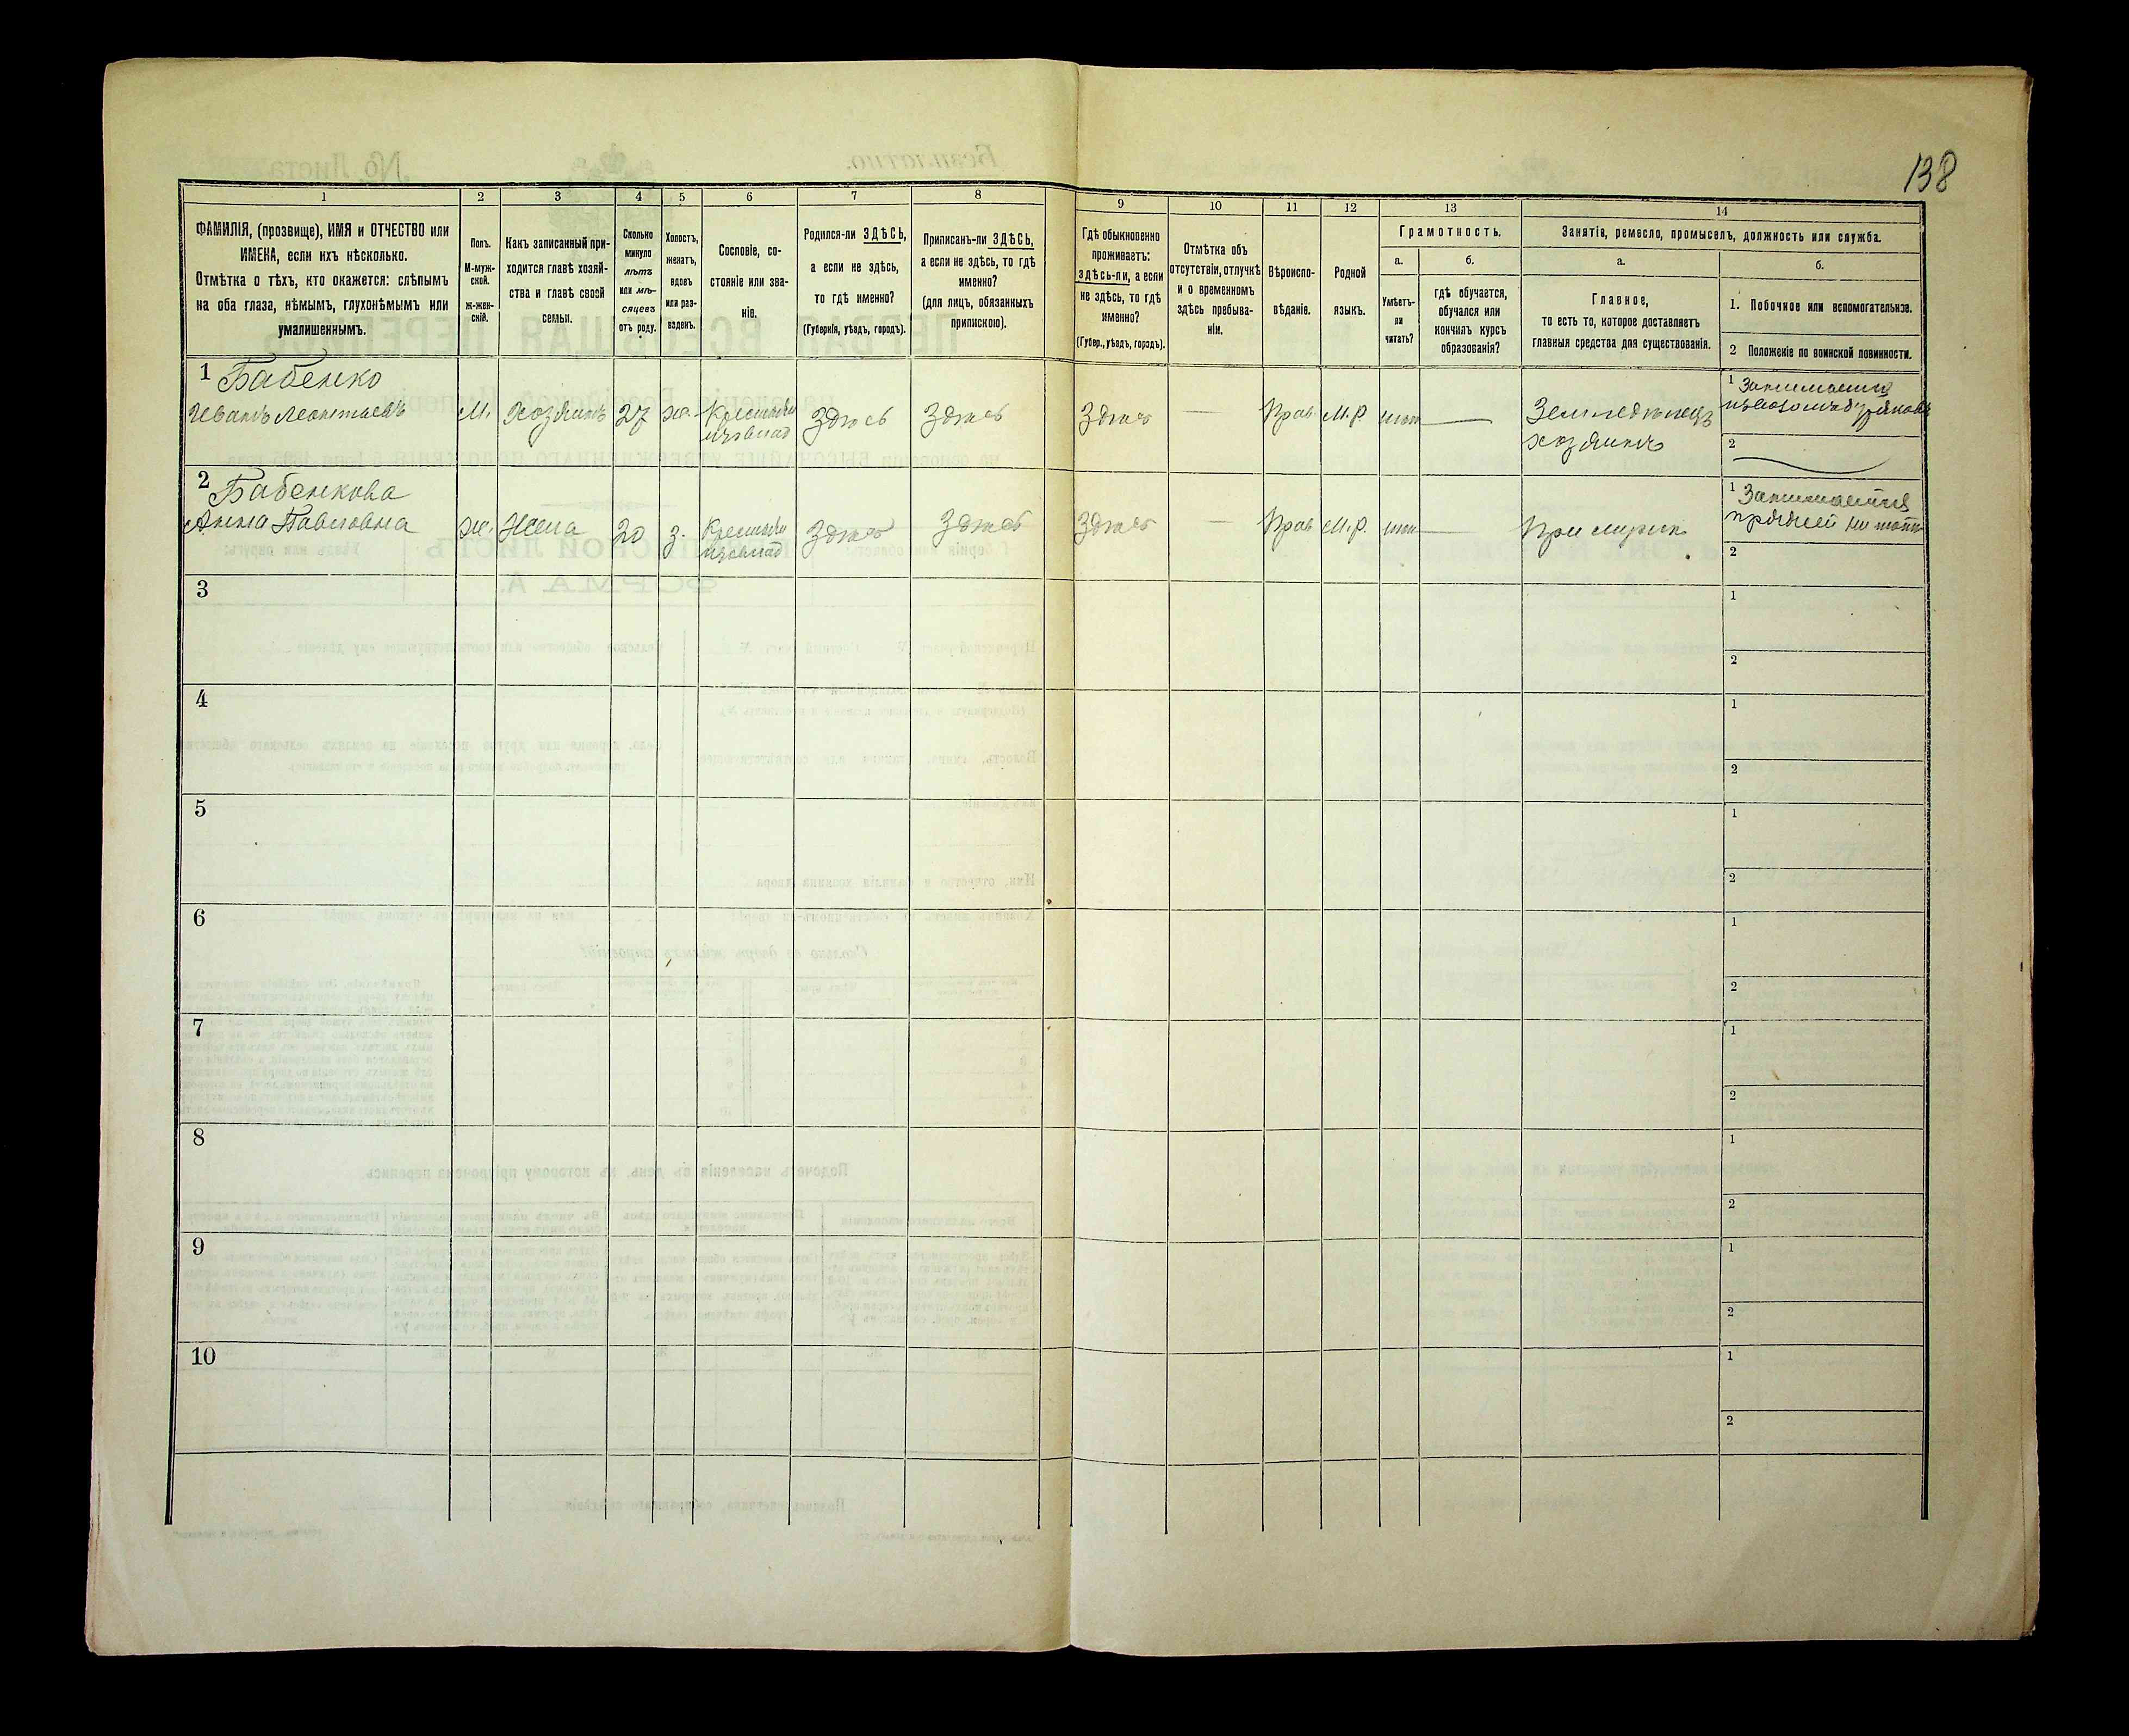 138
1
2
3
4
5
6
7
8
9
10
11
12
13
14
ФАМИЛІЯ, (прозвище), ИМЯ и ОТЧЕСТВО или
ИМЕНА, если ихъ нѣсколько.
Отмѣтка о тѣхъ, кто окажется: слѣпымъ
на оба глаза, нѣмымъ, глухонѣмымъ или
умалишеннымъ.
Полъ.
М-муж-
ской.
Ж-жен-
скій.
Какъ записанный при-
ходится главѣ хозяй-
ства и главѣ своей
семьи.
Сколько
минуло
лѣтъ
или мѣ-
сяцевъ
отъ роду.
Холостъ,
женатъ,
вдовъ
или раз-
веденъ.
Сословіе, со-
стояніе или зва-
ніе.
Родился-ли ЗДѢСЬ,
а если не здѣсь,
то гдѣ именно?
(Губернія, уѣздъ, городъ).
Приписанъ-ли ЗДѢСЬ,
а если не здѣсь, то гдѣ
именно?
(для лицъ, обязанныхъ
припискою).
Гдѣ обыкновенно
проживаетъ:
здѣсь-ли, а если
не здѣсь, то гдѣ
именно?
(Губер., уѣздъ, городъ).
Отмѣтка объ
отсутствіи, отлучкѣ
и о временномъ
здѣсь пребыва-
ніи.
Вѣроиспо-
вѣданіе.
Родной
языкъ.
Грамотность.
а.
Умѣетъ-
ли
читать?
б.
гдѣ обучается,
обучался или
кончилъ курсъ
образованія?
Занятіе, ремесло, промыселъ, должность или служба.
а.
Главное,
то есть то, которое доставляетъ
главныя средства для существованія.
б.
1. Побочное или вспомогательное.
2 Положеніе по воинской повинности.
1 Бабенко
Иванъ Леонтьевъ
М. Хозяинъ 27 ж. Крестьян
изъ влад
Здѣсь Здѣсь Здѣсь — Прав М.Р. нѣт —
Земледѣлецъ
хозяинъ
1 Занимается
2
2 Бабенкова
Анна Павловна
ж. Жена 20 з. Крестьян
изъ влад
Здѣсь Здѣсь Здѣсь — Прав М.Р. нѣт —
При мужѣ
1 Занимается
пряжей ниток
2
3
1
2
4
1
2
5
1
2
6
1
2
7
1
2
8
1
2
9
1
2
10
1
2